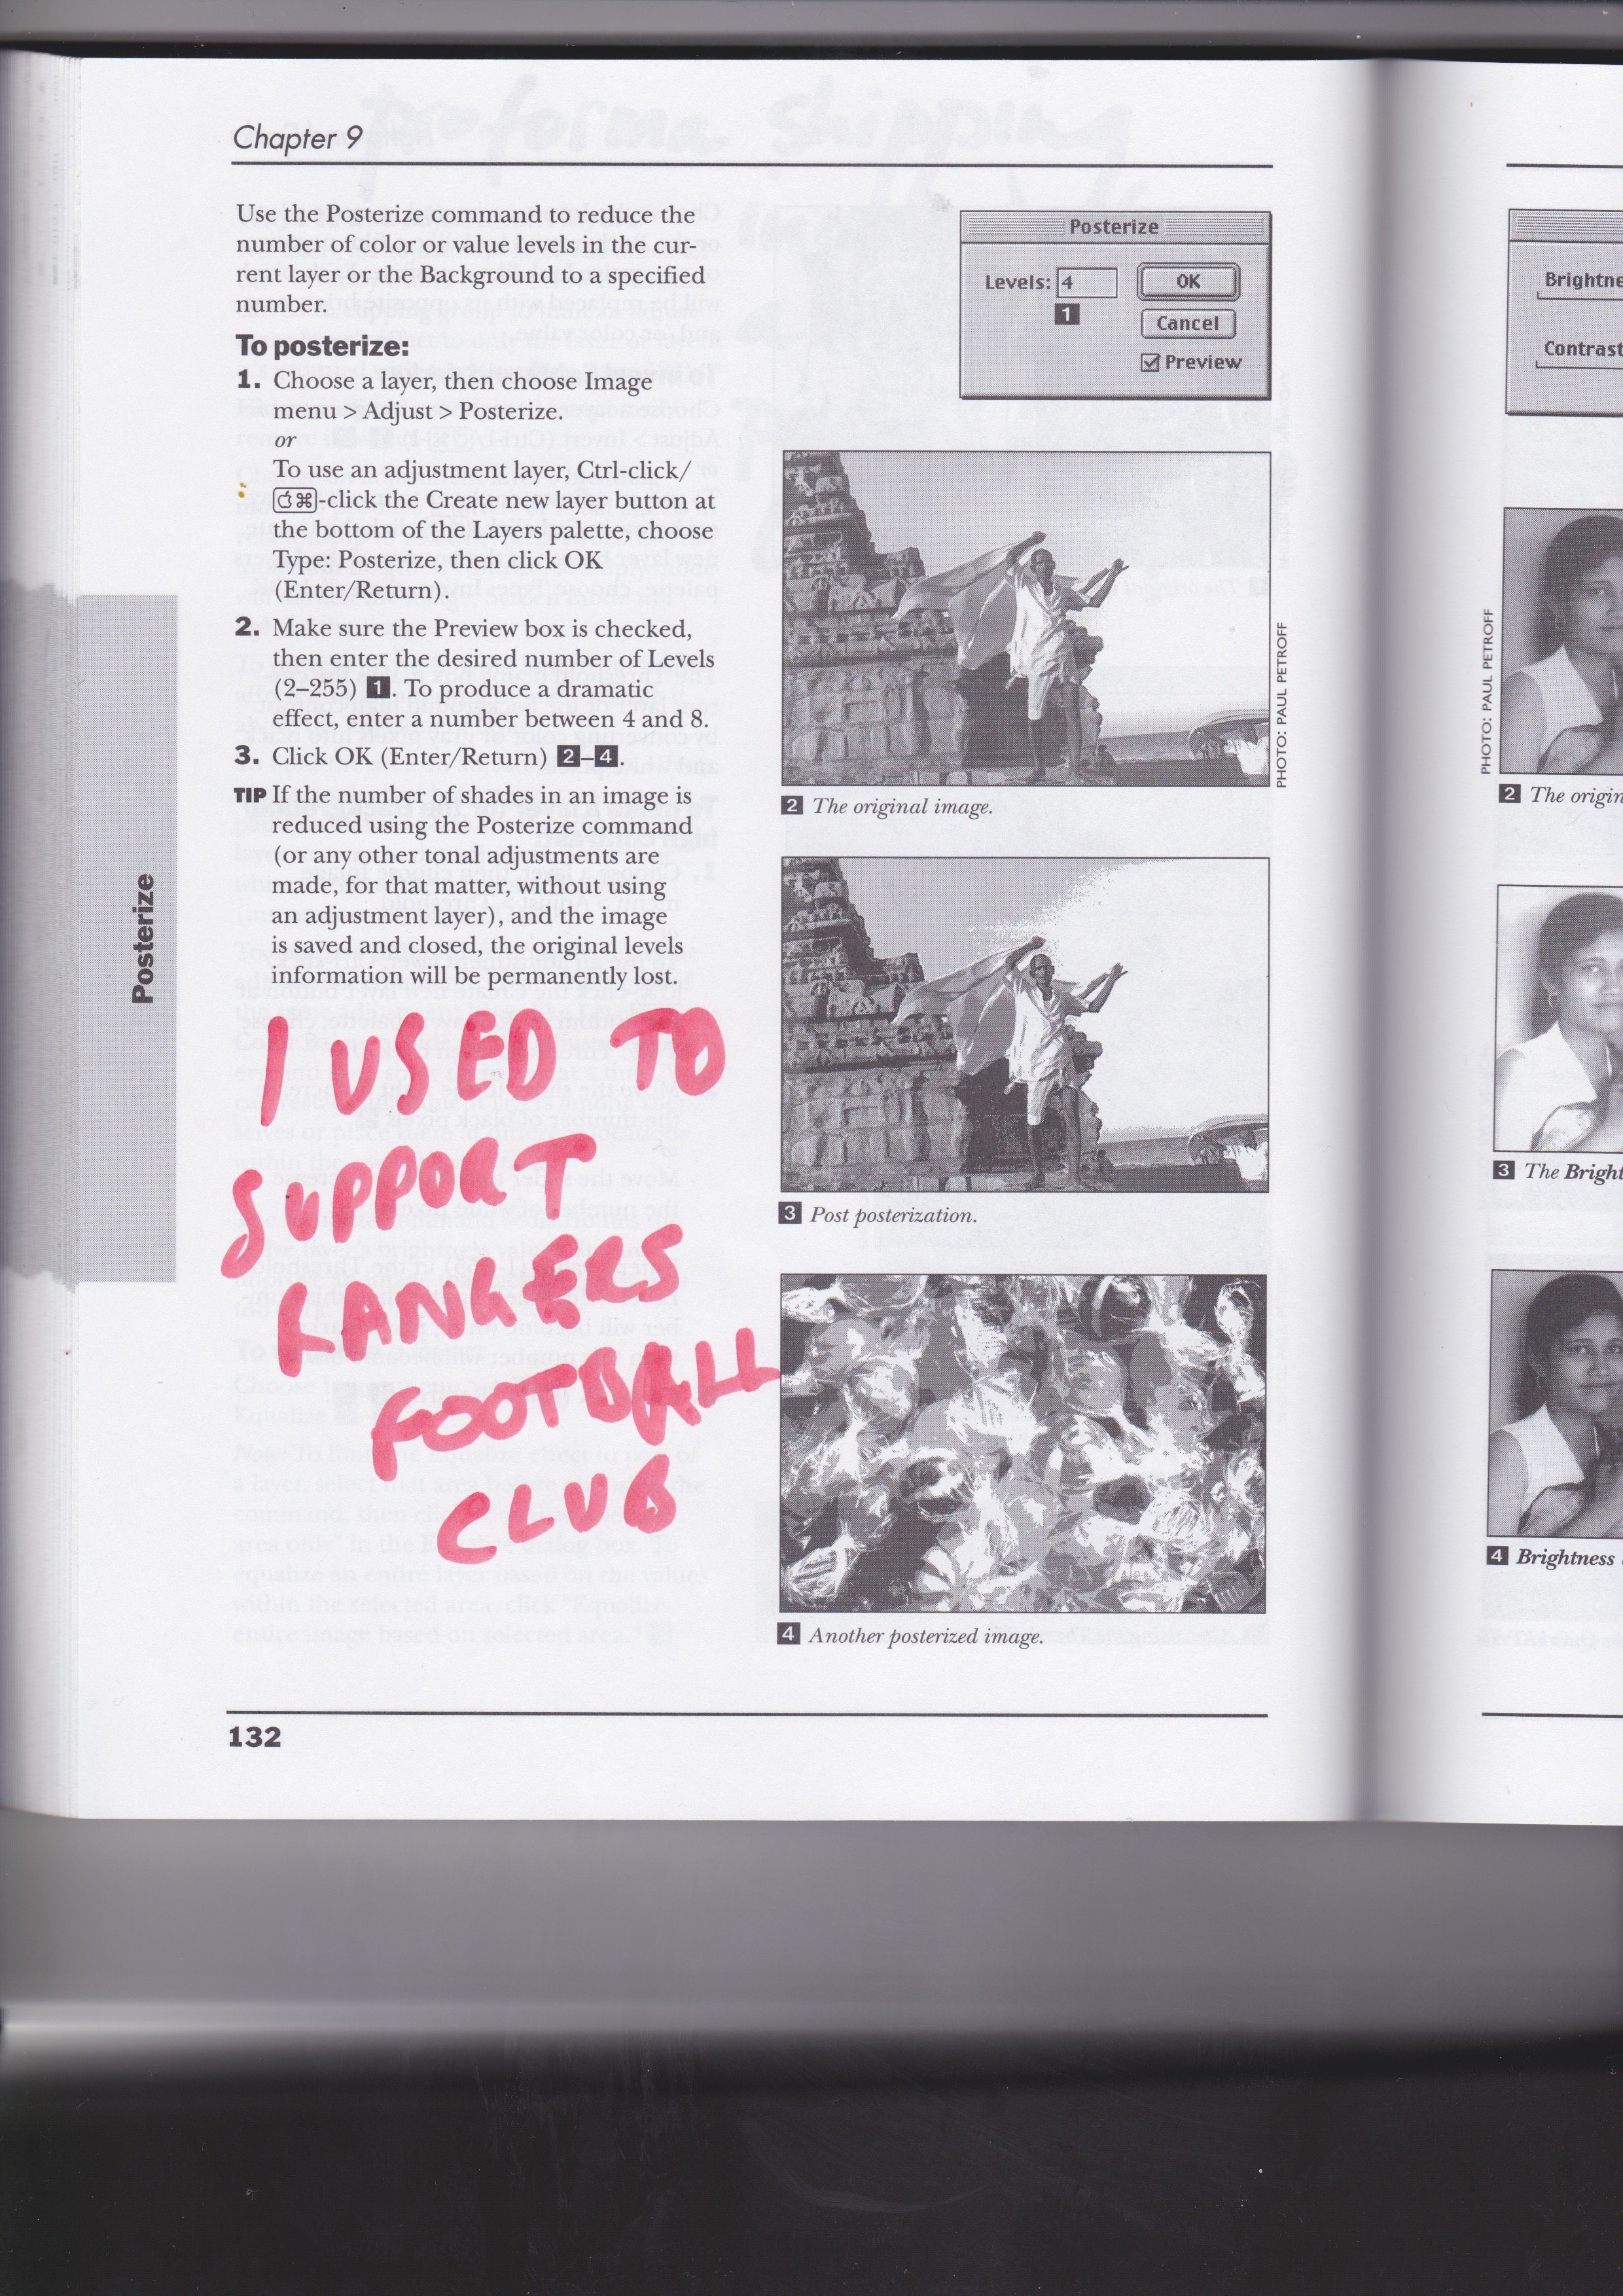 Chapter 9
Use the Posterize command to reduce the
number of color or value levels in the cur-
rent layer or the Background to a specified
number.
To posterize:
1. Choose a layer, then choose Image
menu > Adjust > Posterize.
or
To use an adjustment layer, Ctrl-click/
⌘-click the Create new layer button at
the bottom of the Layers palette, choose
Type: Posterize, then click OK
(Enter/Return).
2. Make sure the Preview box is checked,
then enter the desired number of Levels
(2–255) 1. To produce a dramatic
effect, enter a number between 4 and 8.
3. Click OK (Enter/Return) 2–4.
TIP If the number of shades in an image is
reduced using the Posterize command
(or any other tonal adjustments are
made, for that matter, without using
an adjustment layer), and the image
is saved and closed, the original levels
information will be permanently lost.
I USED TO
SUPPORT
FOOTBALL
CLUB
Posterize
132
Posterize
Levels: 4
OK
1
Cancel
Preview
PHOTO: PAUL PETROFF
2 The original image.
3 Post posterization.
4 Another posterized image.
Brightne
Contrast
PHOTO: PAUL PETROFF
2 The origin
3 The Bright
4 Brightness